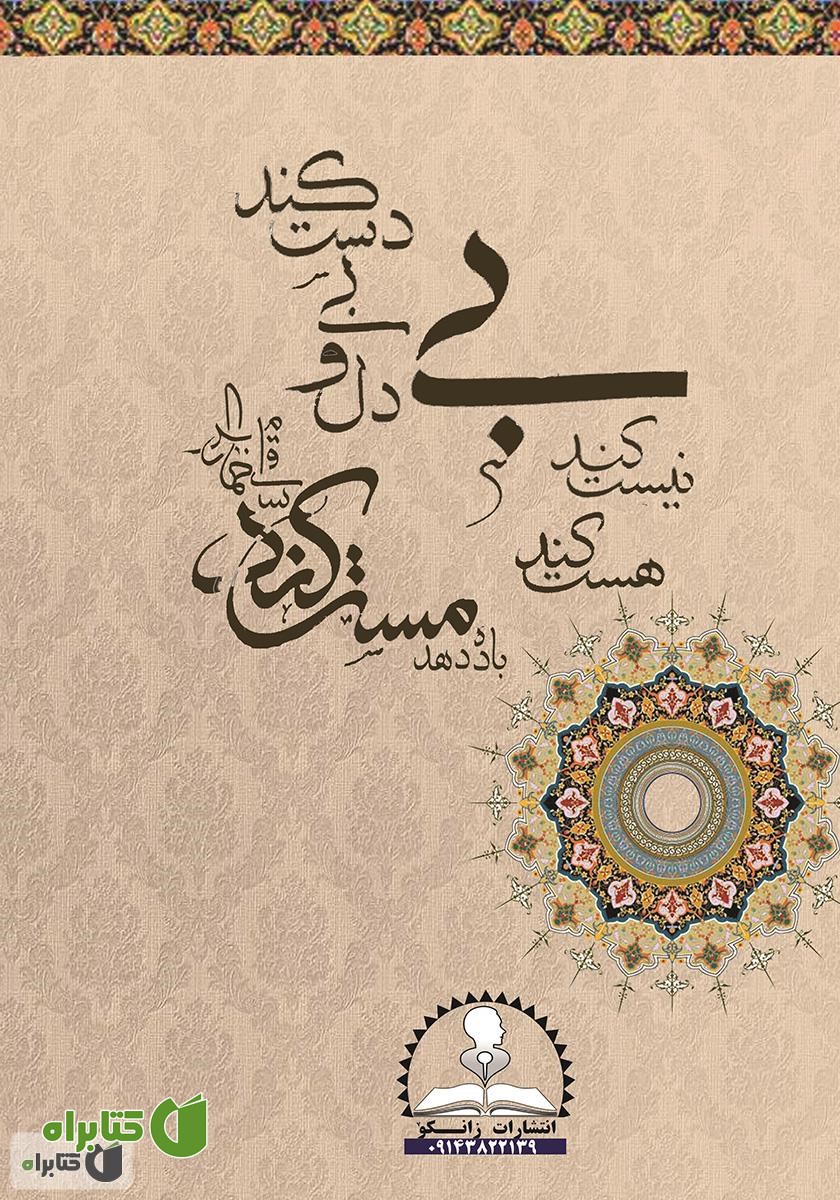 نیست کند
هست کند
بی
دل و بی
دست کند
باده دهد
مست کند
ساقی خمار
انتشارات زانکو
۰۹۱۴۳۸۲۲۱۳۹
کتابراه
کتابراه